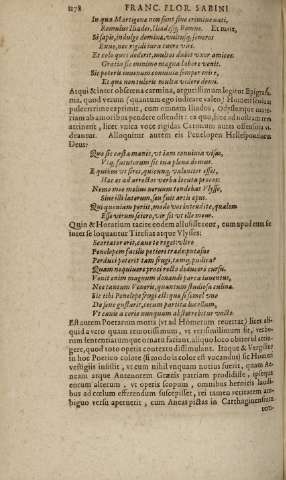 1178 FRANC. FLOR. SABINI
In qua Martigena non sunt sine crimine nati,
Romulus Iliades, Iliadesque Remus. Et mox,
Si sapis, indulge dominæ, vultusque severos
Exue, nec rigidi iura tuere viri.
Et cole quos dederit, multos dabit uxor amicos.
Gratia sic minimo magna labore venit.
Sic poteris iuvenum convivia semper inire,
Et quæ non tuleris multa videre domi.
Atqui & inter obscœna carmina, argutissimum legitur Epigra
ma, quand verum (quantum ego iudicare valeo) Homeri
pulcerrime exprimit, cum
offendit: ea
attinent, licet unica voce rigidas Catonum aures
drantur. Alloquitur autem eis Penelopen Hellespondiacus
Deus:
Quo sic casta manes, ut iam convivia visas,
Utque fututorum sit tua plena domus.
E quibus ut scires quicunque valentior esset,
Hæc es ad arrectos verba locuta procos:
Nemo meo melius nervum tendebat Ulysse,
Sive illi laterum, seu fuit artis opus.
Qui quoniam periit, modo vos intendite, qualem
Esse virum sciero, vir sit ut ille meus.
Quin & Horatium tacite eodem allusisse
inter se loquuntur Tiresias atque Ulysses:
Scortator erit, cave te roget: ultro
Penelopem facilis potiori trade. putasne
Perduci poterit tam frugi, tamque pudica?
Quam nequivere proci recto depellere cursu.
Venit enim magnum donandi parca iuventus,
Nec tantum Veneris, quantum studiosa culinæ.
Sic tibi Penelope frugi est: quæ si semel uno
De sene gustarit, tecum partita lucellum,
Ut canis a corio nunquam absterrebitur uncto.
Est autem Poetarum mens (ut ad Homerum revertar) licet ali-
quid a vero quam remotissimum, ut verisimillimum sit, verbo-
rum sententiarumque ornatu faciant. aliquo loco
gere, quod toto operis contextu dissimulant. Itaque & Vergilius
in hoc Poetico colore (si modo is color est vocandus) sic Homeri
vestigiis insistit, ut cum nihil unquam notius fuerit, quam Ae-
neam atque Antenorem Græcis patriam prodidisse, ipseque
encum alterum, ut operis scopum, omnibus heroicis laudi-
bus ad cœlum efferendum susceperisset, rei tamen veritatem am-
biguo versu aperuerit, cum Aeneas pictas in Carthaginensium
tem-